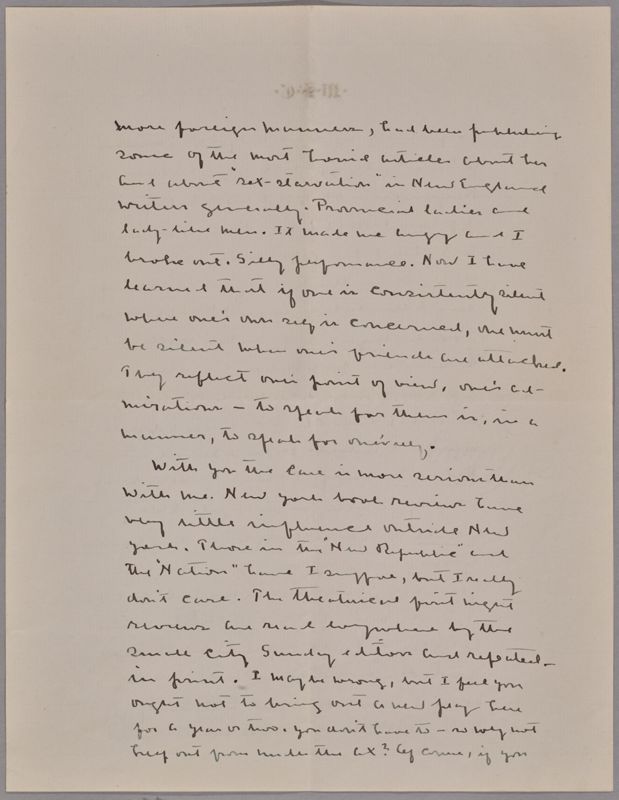 more foreign manners, had been publishing
some of the most horrid articles about her
and about "sex-starvation" in New England
writers generally. Provincial ladies and
lady-like men. It made me angry and I
broke out. Silly performance. Now I have
learned that if one is consistently silent
where one's own self is concerned, one must
be silent when one's friends are attacked.
They reflect one's point of view, one's ad-
mirations — to speak for them is, in a
manner, to speak for one's self.
With you the case is more serious than
with me. New York book reviews have
very little influence outside New
York. Those in the "New Republic" and
the "Nation" have I suppose, but I really
don't care. The theatrical first night
reviews are read everywhere by the
small city Sunday editors and repeated—
in print. I may be wrong, but I feel you
ought not to bring out a new play here
for a year or two. You don't have to — so why not
keep out from under the ax? Of course, if you